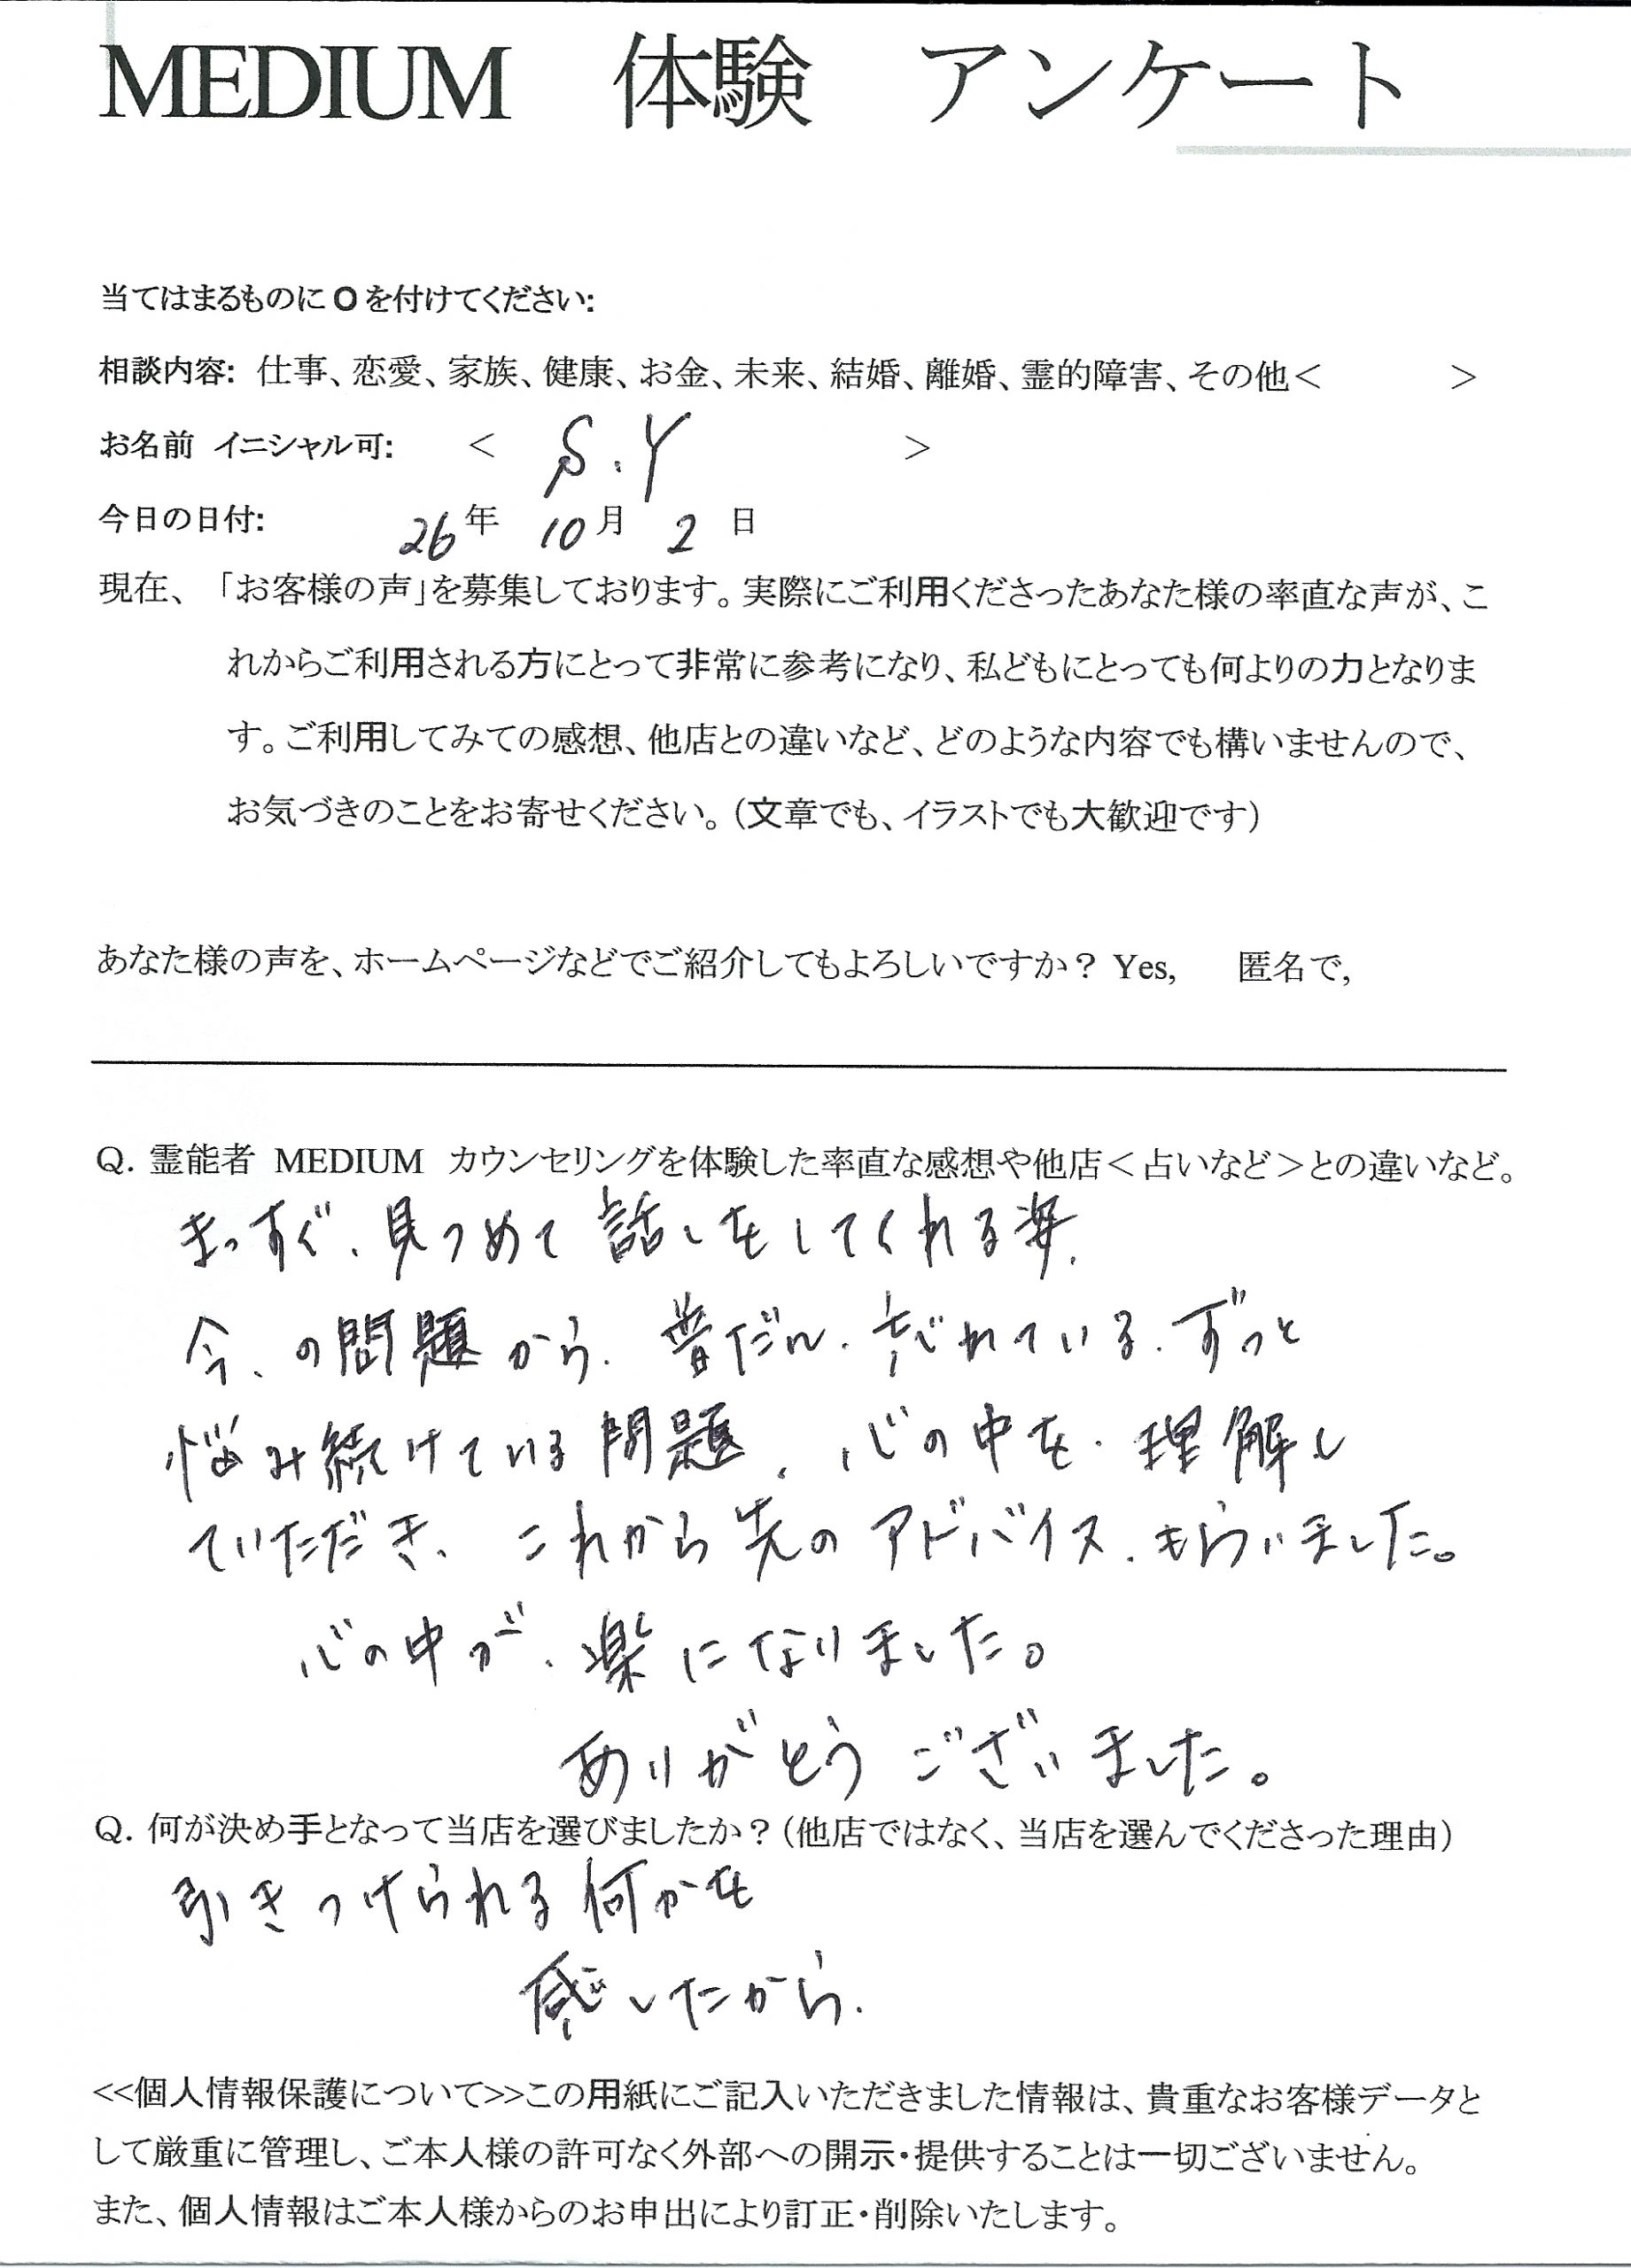 MEDIUM 体験 アンケート
当てはまるものに○を付けてください:
相談内容: 仕事、恋愛、家族、健康、お金、未来、結婚、離婚、霊的障害、その他< >
お名前 イニシャル可: < S.Y >
今日の日付: 26年 10月 2日
現在、「お客様の声」を募集しております。実際にご利用くださったあなた様の率直な声が、こ
れからご利用される方にとって非常に参考になり、私どもにとっても何よりの力となりま
す。ご利用してみての感想、他店との違いなど、どのような内容でも構いませんので、
お気づきのことをお寄せください。(文章でも、イラストでも大歓迎です)
あなた様の声を、ホームページなどでご紹介してもよろしいですか? Yes, 匿名で,
Q. 霊能者 MEDIUM カウンセリングを体験した率直な感想や他店<占いなど>との違いなど。
まっすぐ、見つめて 話しをしてくれる姿、
今、の問題から、普だん、忘れている、ずっと
悩み続けている問題、心の中を、理解し
ていただき、これから先のアドバイス、もらいました。
心の中が、楽になりました。
ありがとうございました。
Q. 何が決め手となって当店を選びましたか?(他店ではなく、当店を選んでくださった理由)
引きつけられる何かを
感じたから、
<<個人情報保護について>>この用紙にご記入いただきました情報は、貴重なお客様データと
して厳重に管理し、ご本人様の許可なく外部への開示・提供することは一切ございません。
また、個人情報はご本人様からのお申出により訂正・削除いたします。